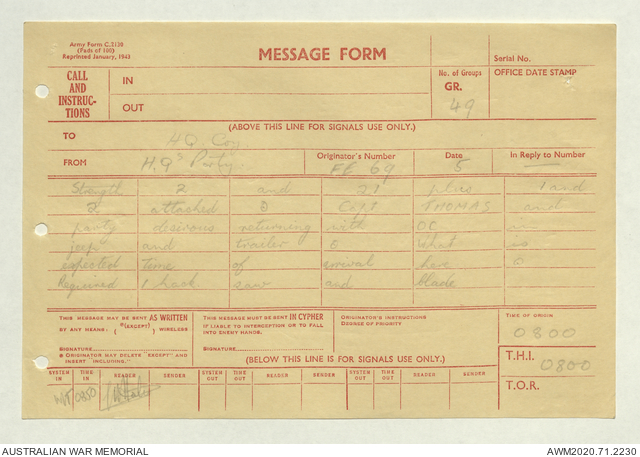 Army Form C.2130
(Pads of 100)
Reprinted January, 1943
MESSAGE FORM
Serial No.
CALL AND INSTRUC-TIONS
IN
OUT
No. of Groups
GR.
49
OFFICE DATE STAMP
(ABOVE THIS LINE FOR SIGNALS USE ONLY.)
TO HQ Coy
FROM H.Q's Party
Originator's Number
FE 69
Date
5
In Reply to Number
Strength 2 and 21 plus 1 and
2 attached Capt THOMAS and
party desirous returning with OC in
jeep and trailer o What is
expected time of arrival here o
Required 1 hack saw and blade
THIS MESSAGE MAY BE SENT AS WRITTEN
BY ANY MEANS: { *(EXCEPT) } WIRELESS
SIGNATURE
* ORIGINATOR MAY DELETE "EXCEPT" AND INSERT INCLUDING."
THIS MESSAGE MUST BE SENT IN CYPHER
IF LIABLE TO INTERCEPTION OR TO FALL INTO ENEMY HANDS.
SIGNATURE
ORIGINATOR'S INSTRUCTIONS
DEGREE OF PRIORITY
TIME OF ORIGIN
0800
(BELOW THIS LINE IS FOR SIGNALS USE ONLY.)
T.H.I. 0800
T.O.R.
SYSTEM IN TIME IN READER SENDER SYSTEM OUT TIME OUT READER SENDER SYSTEM OUT TIME OUT READER SENDER
0850
AUSTRALIAN WAR MEMORIAL
AWM2020.71.2230